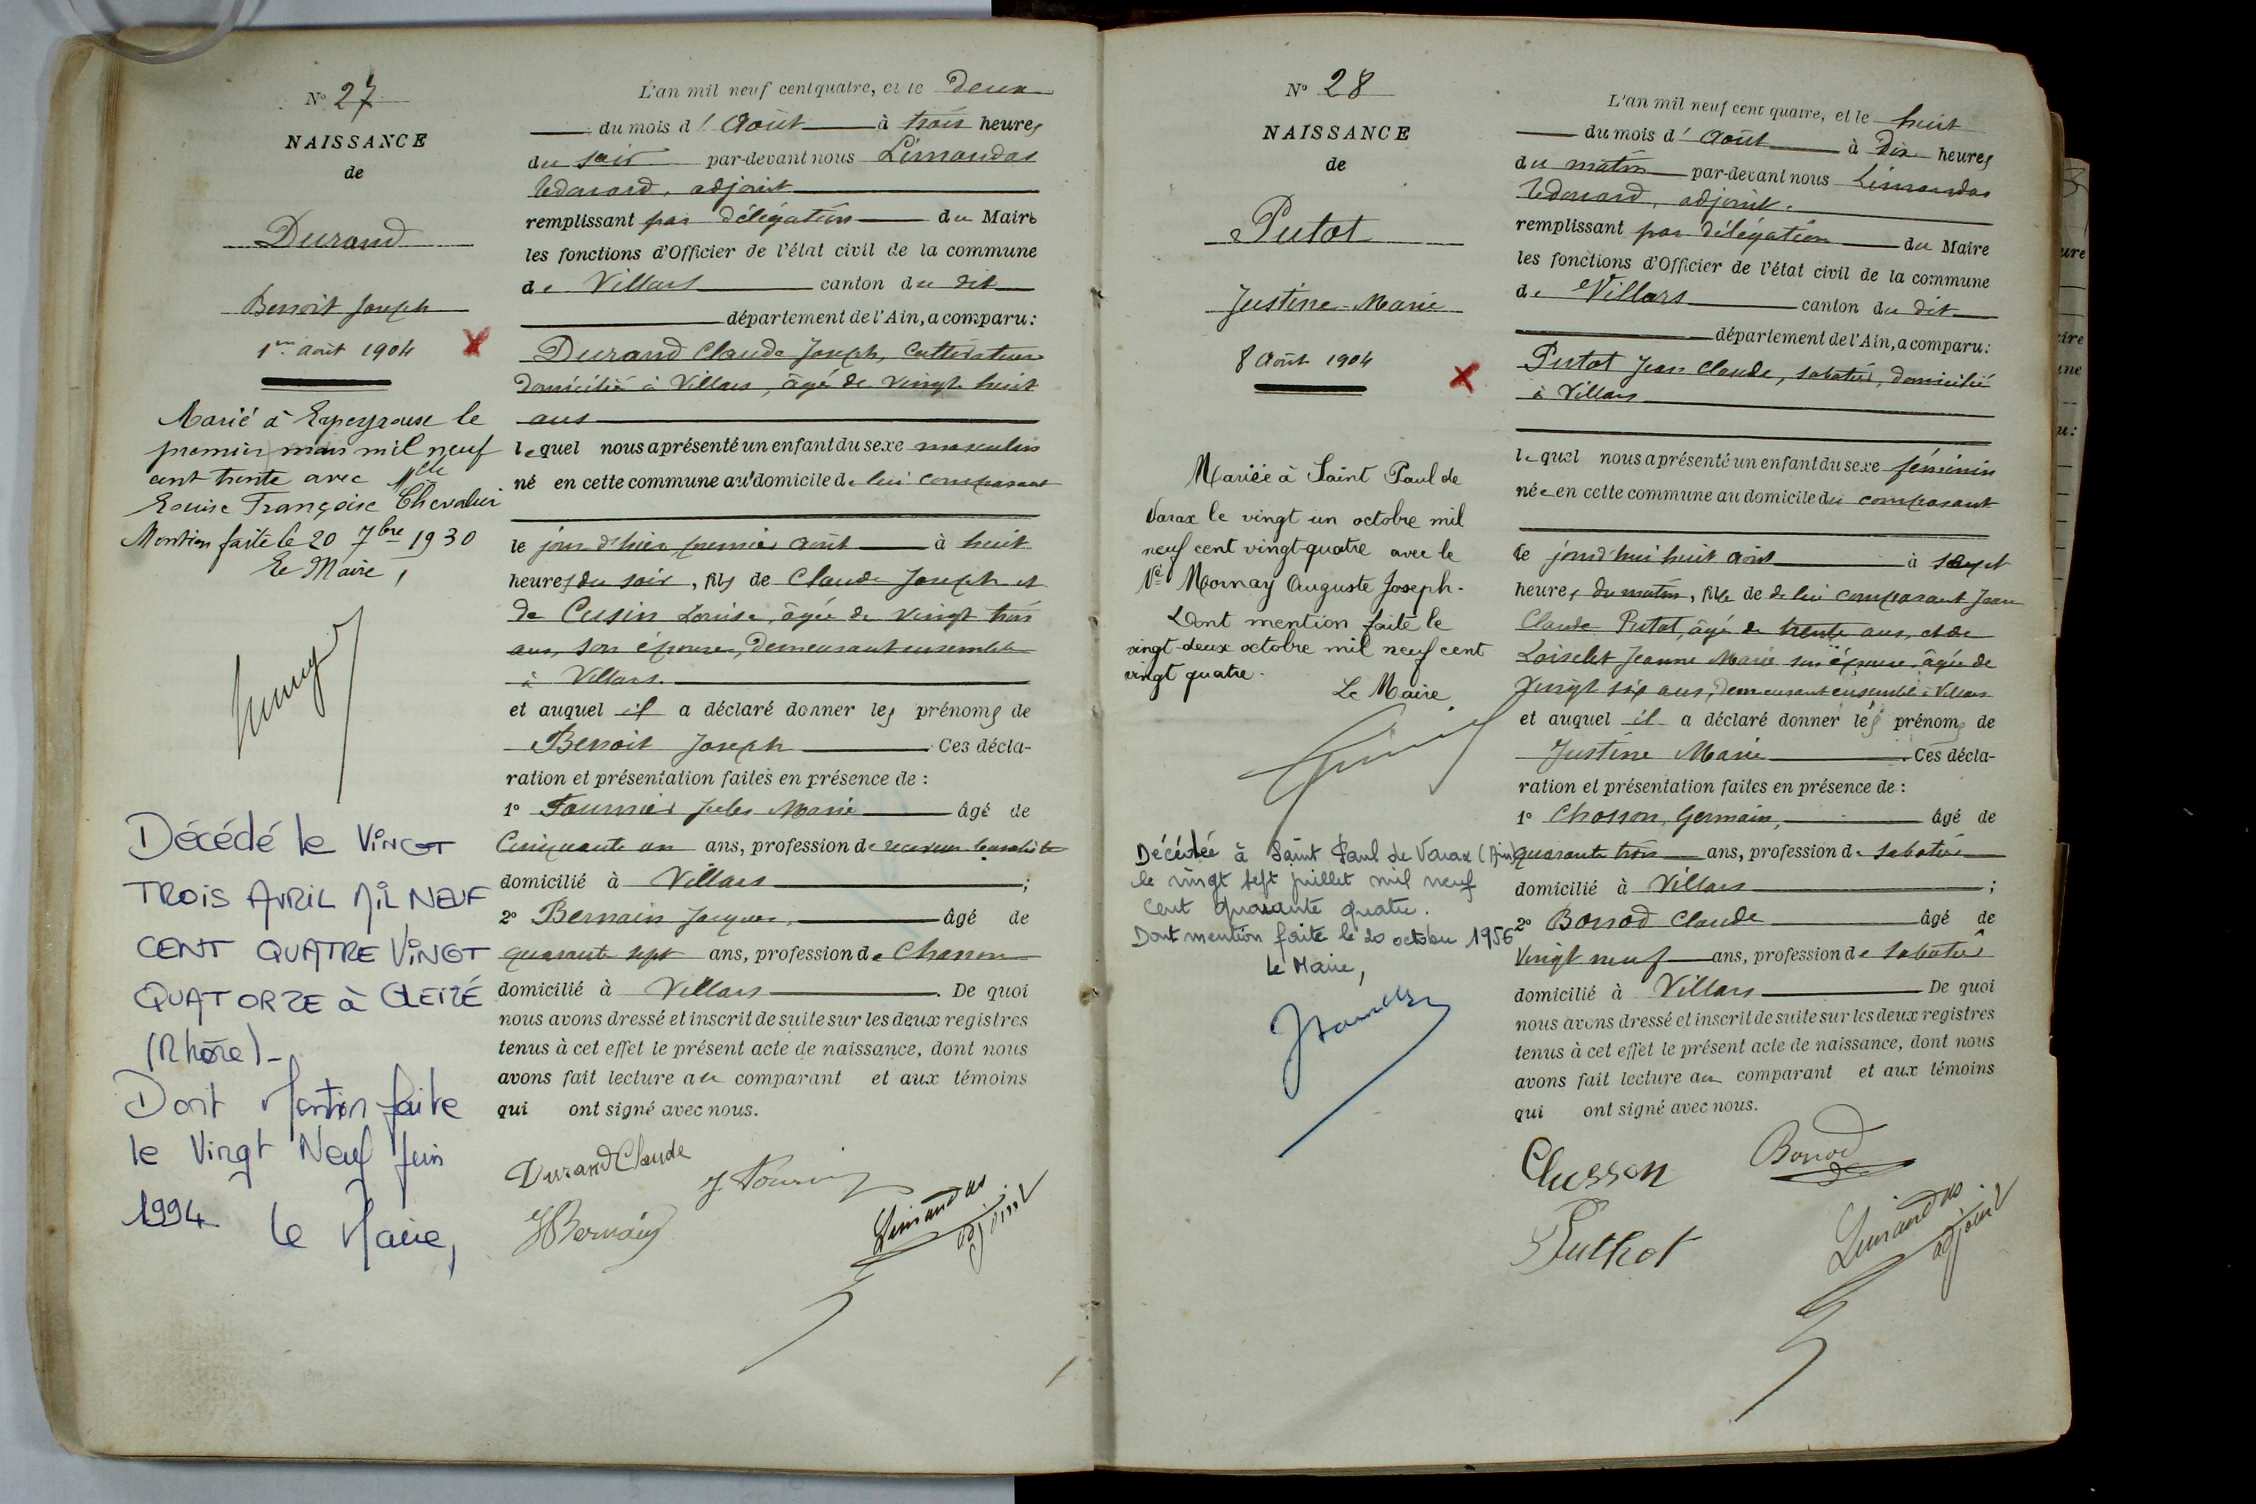 N° 27
NAISSANCE
de
Durand
Benoit Joseph
1er août 1904
Marié à Lapeyrouse le
premier mars mil neuf
cent trente avec Mlle
Louise Françoise Chevalier
Mention faite le 20 7bre 1930
Le Maire,
Décédé le VINGT
TROIS AVRIL MIL NEUF
CENT QUATRE VINGT
QUATORZE à GLEIZÉ
(Rhône)-
Dont Mention faite
le Vingt Neuf Juin
1994 Le Maire,
L'an mil neuf cent quatre, et le deux
du mois d'Août à trois heures
du soir par-devant nous Limandas
Edouard, adjoint
remplissant par délégation du Maire
les fonctions d'Officier de l'état civil de la commune
de Villars canton du dit
département de l'Ain, a comparu:
Durand Claude Joseph, Cultivateur
domicilié à Villars, âgé de vingt huit
ans
lequel nous a présenté un enfant du sexe masculin
né en cette commune au domicile de lui comparant
le jour d'hier premier août à huit
heures du soir, fils de Claude Joseph et
de Cusin Louise, âgée de vingt trois
ans, son épouse, demeurant ensemble
à Villars.
et auquel il a déclaré donner les prénoms de
Benoit Joseph Ces décla-
ration et présentation faites en présence de :
1° Fournier Jules Marie âgé de
Cinquante un ans, profession de receveur buraliste
domicilié à Villars ;
2° Bernain Jacques, âgé de
quarante sept ans, profession de Charron
domicilié à Villars. De quoi
nous avons dressé et inscrit de suite sur les deux registres
tenus à cet effet le présent acte de naissance, dont nous
avons fait lecture au comparant et aux témoins
qui ont signé avec nous.
Durand Claude
J. Fournier
JBernain
Limandas
adjoint
N° 28
NAISSANCE
de
Putot
Justine-Marie
8 Août 1904
Mariée à Saint Paul de
Varax le vingt un octobre mil
neuf cent vingt-quatre avec le
Mornay Auguste Joseph.
Dont mention faite le
vingt-deux octobre mil neuf cent
vingt quatre.
Le Maire.
Décédée à Saint Paul de Varax (Ain)
le vingt sept juillet mil neuf
cent quarante quatre.
Dont mention faite le 20 octobre 1956
Le Maire,
L'an mil neuf cent quatre, et le huit
du mois d'Août à dix heures
du matin par-devant nous Limandas
Edouard, adjoint.
remplissant par délégation du Maire
les fonctions d'Officier de l'état civil de la commune
de Villars canton du dit
département de l'Ain, a comparu:
Putot Jean Claude, sabotier, domicilié
à Villars
lequel nous a présenté un enfant du sexe féminin
née en cette commune au domicile du comparant
le jourd'hui huit Août à sept
heures du matin, fille de de lui comparant Jean
Claude Putot, âgé de trente ans, et de
Loiselet Jeanne Marie son épouse, âgée de
vingt six ans, demeurant ensemble à Villars
et auquel il a déclaré donner les prénoms de
Justine Marie Ces décla-
ration et présentation faites en présence de :
1° Chosson, Germain, âgé de
quarante trois ans, profession de sabotier
domicilié à Villars ;
2° Borrod Claude âgé de
Vingt neuf ans, profession de sabotier
domicilié à Villars De quoi
nous avons dressé et inscrit de suite sur les deux registres
tenus à cet effet le présent acte de naissance, dont nous
avons fait lecture au comparant et aux témoins
qui ont signé avec nous.
Chosson
Borrod
Puthot
Limandas
adjoint